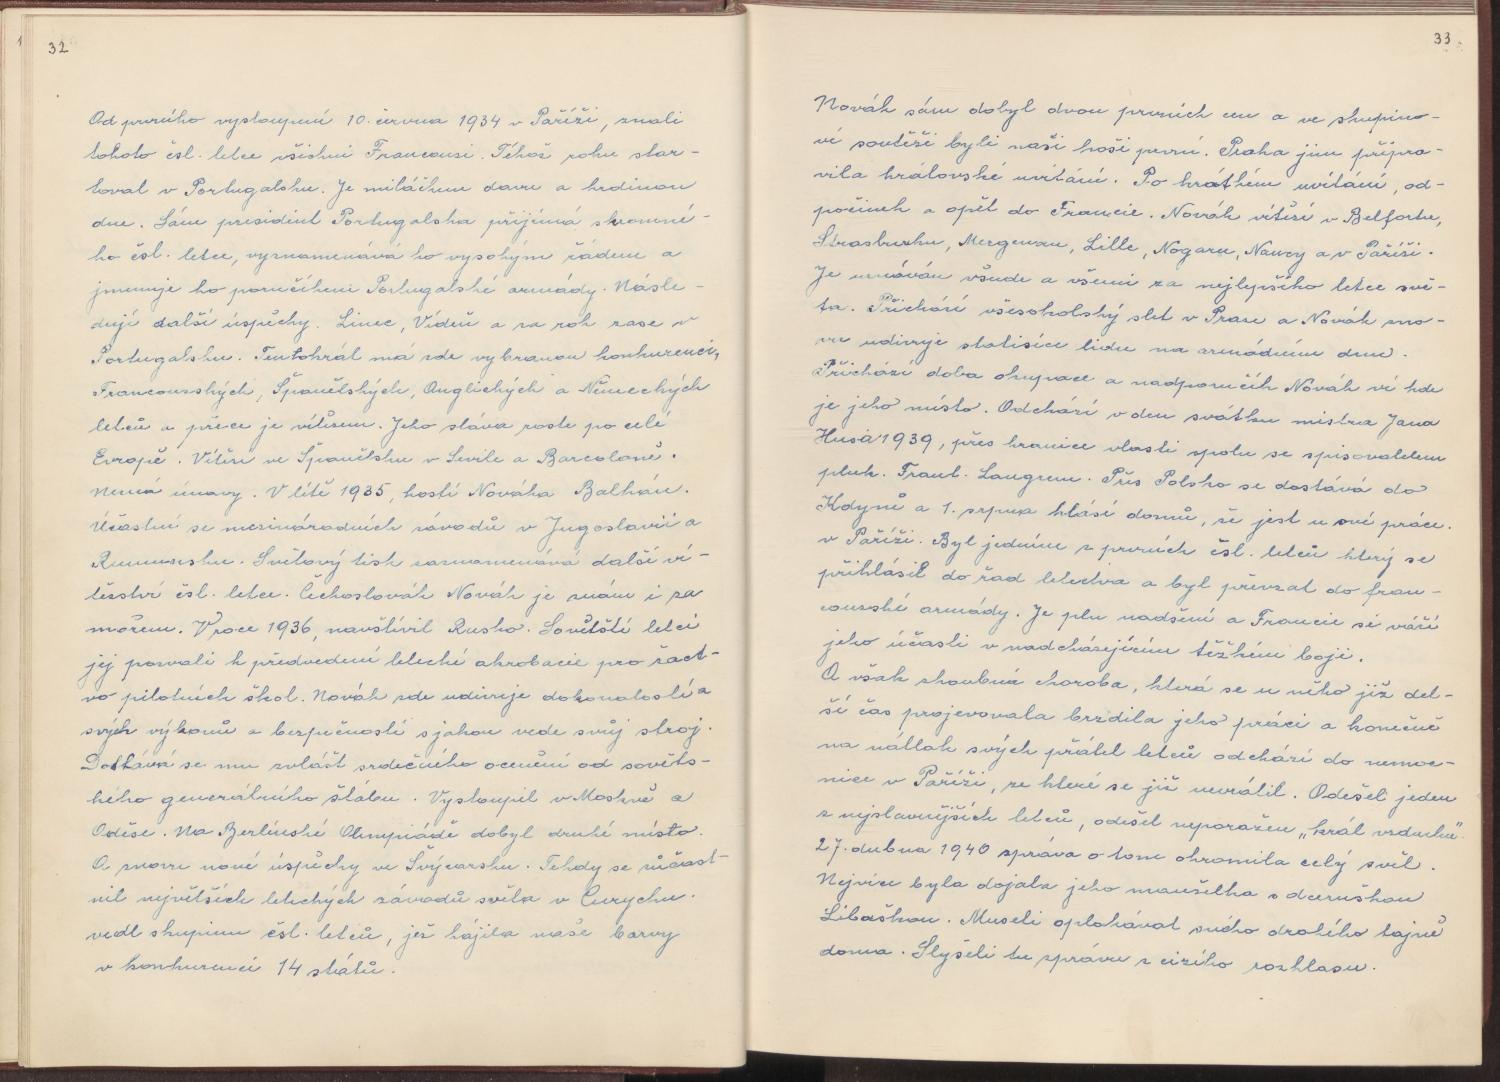 32
Od prvního vystoupení 10. června 1934 v Paříži, znali
tohoto čsl. letce všichni Francousi. Téhož roku star-
toval v Portugalsku. Je miláčkem davu a hrdinou
dne. Sám president Portugalska přijímá skromné-
ho čsl. letce, vyznamenává ho vysokým řádem a
jmenuje ho poručíkem Portugalské armády. Násle-
dují další úspěchy. Linec, Vídeň a za rok zase v
Portugalsku. Tentokrát má zde vybranou konkurenci,
Francouzských, Španělských, Anglických a Německých
letců a přece je vítězem. Jeho sláva roste po celé
Evropě. Vítězí ve Španělsku v Sevile a Barceloně.
Nemá únavy. V létě 1935, hostí Nováka Balkán.
Účastní se mezinárodních závodů v Jugoslavii a
Rumunsku. Světový tisk zaznamenává další ví-
tězství čsl. letce. Čechoslovák Novák je znám i za
mořem. V roce 1936, navštívil Rusko. Sovětští letci
jej pozvali k předvedení letecké akrobacie pro žact-
vo pilotních škol. Novák zde udivuje dokonalostí a
svých výkonů a bezpečností s jakou vede svůj stroj.
Dostává se mu zvlášť srdečného ocenění od sověts-
kého generálního štábu. Vystoupil v Moskvě a
Oděse. Na Berlínské Olimpiádě dobyl druhé místo.
A znovu nové úspěchy ve Švýcarsku. Tehdy se súčast-
nil největších leteckých závodů světa v Curychu.
vedl skupinu čsl. letců, jež hájila naše barvy
v konkurenci 14 států.
33
Novák sám dobyl dvou prvních cen a ve skupino-
vé soutěži byli naši hoši první. Praha jim připra-
vila královské uvítání. Po krátkém uvítání, od-
počinek a opět do Francie. Novák vítězí v Belfortu,
Strasburku, Mergenzu, Lille, Nogaru, Nancy a v Paříži.
Je uznáván všude a všemi za nejlepšího letce svě-
ta. Přichází všesokolský slet v Praze a Novák zno-
vu udivuje statisíce lidu na armádním dnu.
Přichází doba okupace a nadporučík Novák ví kde
je jeho místo. Odchází v den svátku mistra Jana
Husa 1939, přes hranice vlasti spolu se spisovatelem
pluk. Frant. Langrem. Přes Polsko se dostává do
Kdyně a 1. srpna hlásí domů, že jest u své práce.
v Paříži. Byl jedním z prvních čsl. letců který se
přihlásil do řad letectva a byl převzat do fran-
couzské armády. Je pln nadšení a Francie si váží
jeho účasti v nadcházejícím těžkém boji.
A však zhoubná choroba, která se u něho již del-
ší čas projevovala brzdila jeho práci a konečně
na nátlak svých přátel letců odchází do nemoc-
nice v Paříži, ze které se již nevrátil. Odešel jeden
z nejslavnějších letců, odešel neporažen „král vzduchu".
27. dubna 1940 zpráva o tom ohromila celý svět.
Nejvíce byla dojata jeho manželka s dceruškou
Libuškou. Museli oplakávat svého drahého tajně
doma. Slyšeli tu zprávu z cizího rozhlasu.